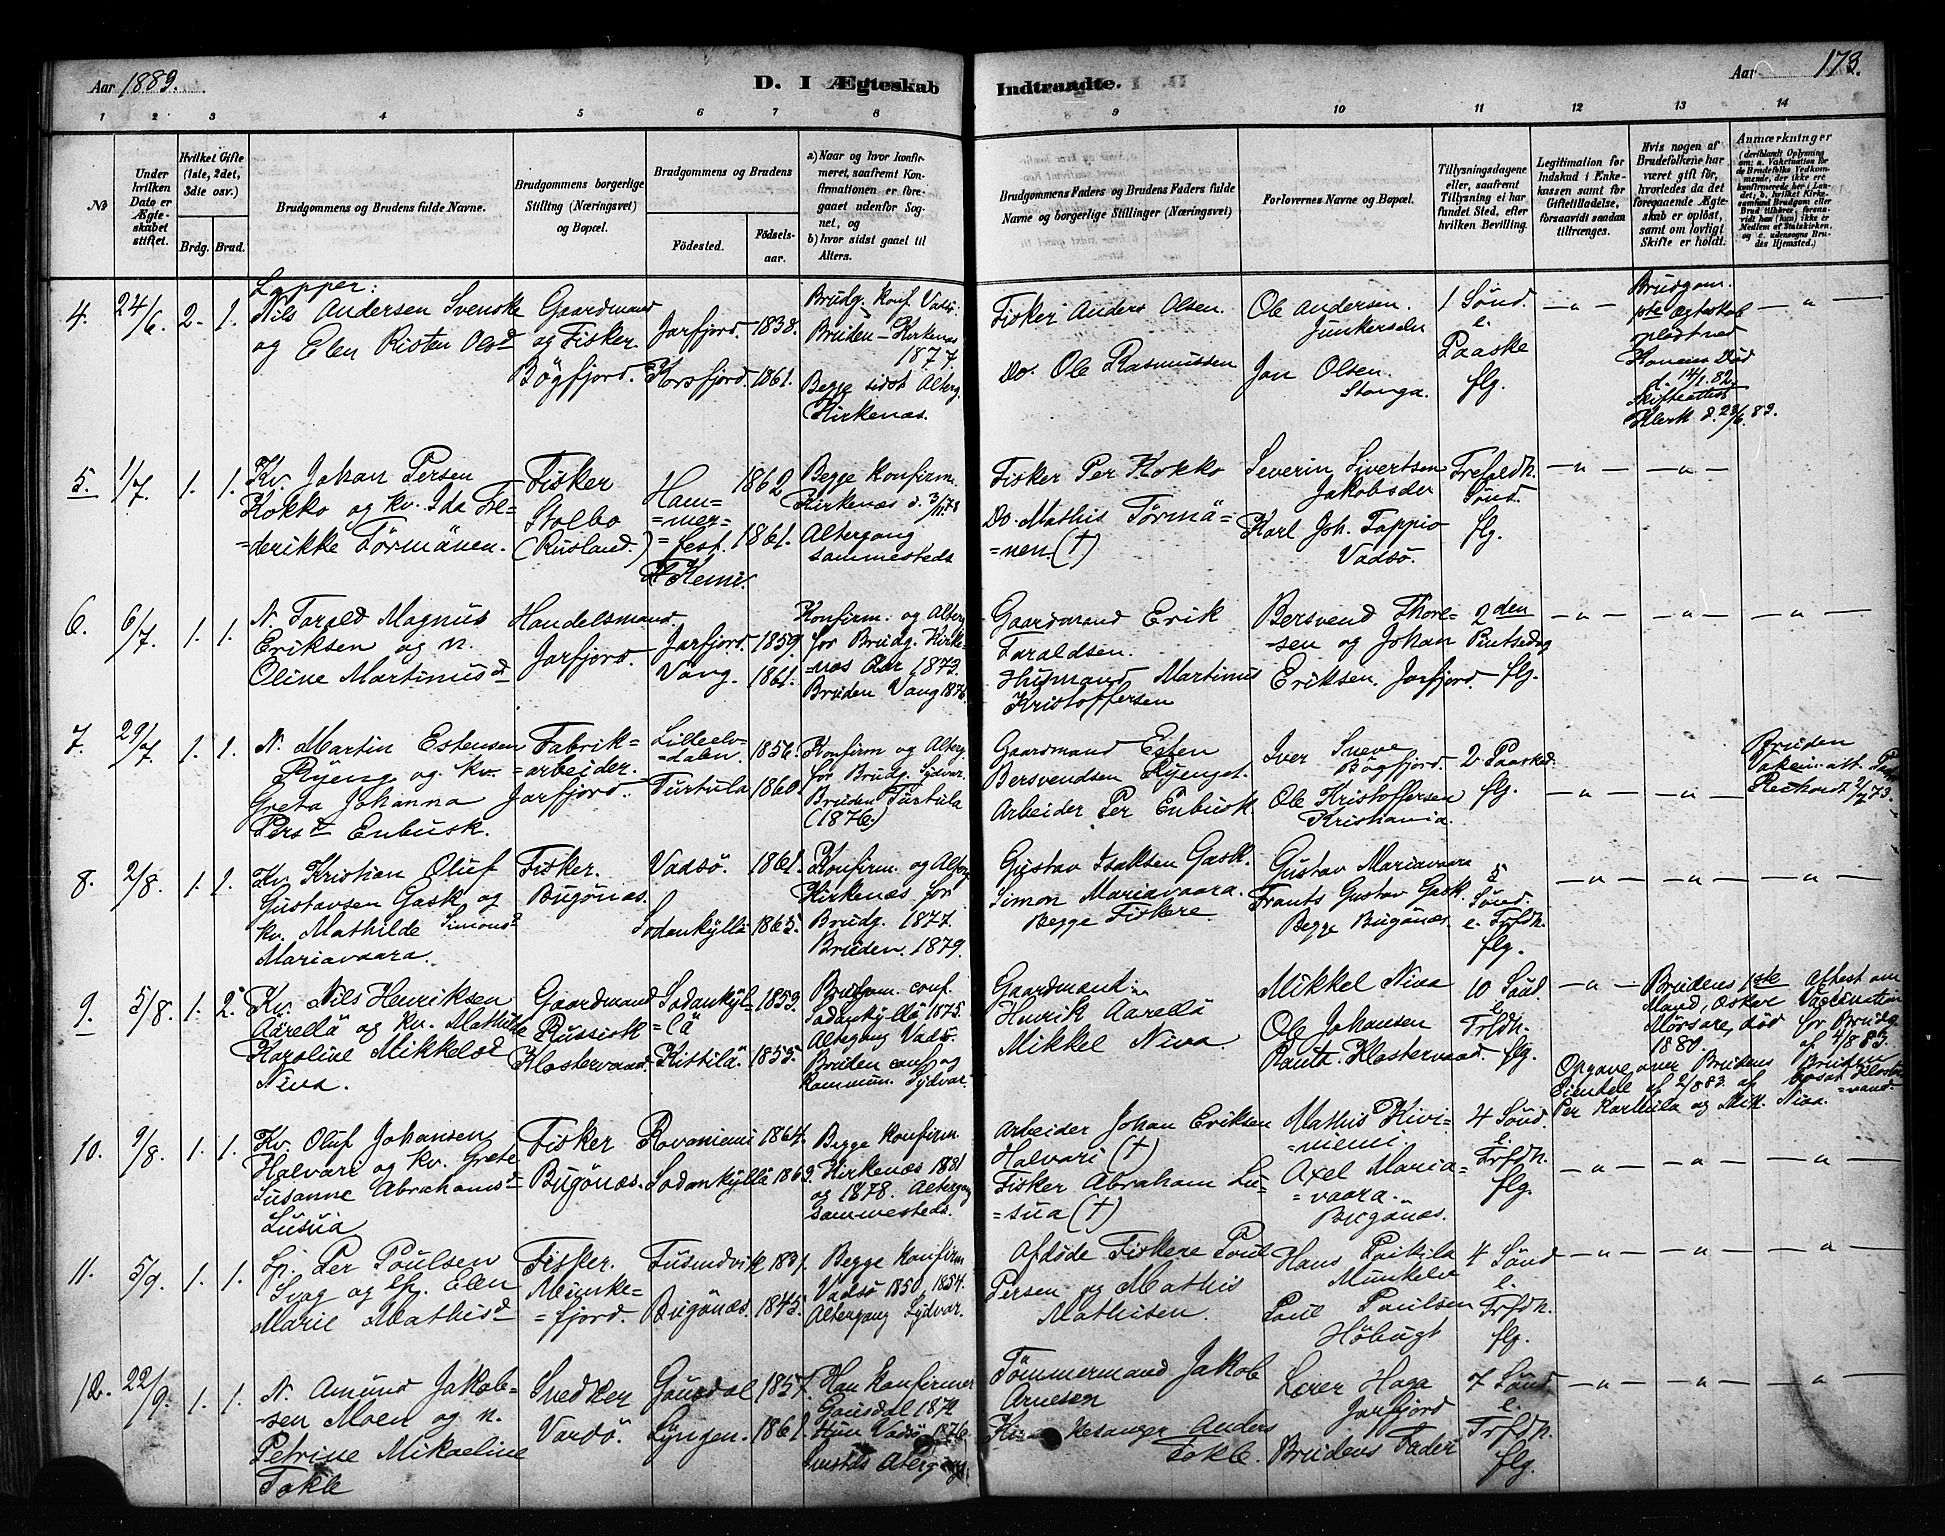 Aar 1883.
D. I Ægteskab
Indtraadte.
Aar 173.
1 2 3 4 5 6 7 8 9 10 11 12 13 14
No
Under hvilken Dato er Ægteskabet stiftet.
Hvilket Gifte (1ste, 2det, 3die osv.)
Brdg. Brud.
Brudgommens og Brudens fulde Navne.
Brudgommens borgerlige Stilling (Næringsvei) og Bopæl.
Brudgommens og Brudens
Fødested.
Fødselsaar.
a) Naar og hvor konfirmeret, saafremt Konfirmationen er foregaaet udenfor Sognet, og
b) hvor sidst gaaet til Alters.
Brudgommens Faders og Brudens Faders fulde Navne og borgerlige Stillinger (Næringsvei)
Forlovernes Navne og Bopæl.
Tillysningsdagene eller, saafremt Tillysning ei har fundet Sted, efter hvilken Bevilling.
Legitimation for Indskud i Enkekassen samt for Giftetilladelse, forsaavidt saadan tiltrænges.
Hvis nogen af Brudefolkene har været gift før, hvorledes da det foregaaende Ægteskab er opløst, samt om lovligt Skifte er holdt.
Anmærkninger
4. 24/6. 2. 1.
Lapper:
Nils Andersen Svenske
og Elen Risten Olsd
Gaardmand
og Fisker
Bögfjord.
Jarfjord. 1838.
Korsfjord. 1861.
Brudg. Konf. Vadsö.
Bruden - Kirkenæs
1877
Begge sidst Alterg.
Kirkenæs.
Fisker Anders Olsen.
Do. Ole Rasmussen
Ole Andersen.
Junkerselv
Jon Olsen.
Stonga.
1 Sönd.
e.
Paaske
flg.
Brudgom.
Ægteskab
opløst ved
Konens Död
d. 14/1. 82.
Skifteattest
d. 23/6 83.
5. 1/7. 1. 1.
Kv. Johan Persen
Kokko og kv. Ida Fre=
=derikke Törmänen.
Fisker
Stolbo
(Rusland.)
Ham=
=mer=
=fest.
Kemi.
1862
1861.
Begge Konfirm.
Kirkenæs
Altergang
sammesteds
Fisker Per Kokko
Do. Mathis Törmä=
=nen. (†)
Severin Sivertsen
Jakobselv
Karl Joh. Tappio
Vadsö.
Trefoldh.
Sönd.
flg.
6. 6/7. 1. 1.
N. Tarald Magnus
Eriksen og n.
Oline Martinusd
Handelsmand.
Jarfjord.
Jarfjord. 1859.
Vang. 1861.
Konfirm. og Alterg.
for Brudg. Kirke=
=næs Aar 1873.
Bruden Vang 1876
Gaardmand Erik
Taraldsen.
Husmand Martinus
Kristoffersen
Bersvend Thore=
=sen og Johan
Eriksen. Jarfjord.
2den
Pintsedag
flg.
7. 29/7. 1. 1.
N. Martin Estensen
Ryeng og kv.
Greta Johanna
Persd Enbusk.
Fabrik=
=arbeider.
Jarfjord.
Lilleelv=
=dalen. 1856.
Turtula 1860.
Konfirm og Alterg.
for Brudg. Sydvar.
Bruden Turtula
(1876.)
Gaardmand Esten
Bersvendsen Ryenget.
Arbeider Per Enbusk.
Iver Sneve
Bögfjord.
Ole Kristoffersen
Kristiania.
2 Paasked.
flg.
Bruden
8. 2/8. 1. 1.
Kv. Kristian Oluf
Gustavsen Gask og
kv. Mathilde Simonsd
Mariavaara.
Fisker.
Bugönæs.
Vadsö. 1861.
Sodankylä 1865.
Konfirm. og Alterg.
Kirkenæs for
Brudg. 1877.
Bruden. 1879.
Gustav Isaksen Gask.
Simon Mariavaara.
Begge Fiskere
Gustav Mariavaara
Frants Gustav Gask.
Begge Bugönæs.
5
Sönd.
e. Trfdh.
flg.
9. 5/8. 1. 2.
Kv. Nils Henriksen
Aarellä og kv. Mathilde
Karoline Mikkelsd
Niva.
Gaardmand
Russisk
Klostervand
Sodankyl=
=lä 1853.
Kittilä. 1855.
Brudgom. conf.
Sodankyllä 1875.
Altergang Vadsö.
Bruden conf. og
kommun. Sydvar.
Gaardmænd:
Henrik Aarellä
Mikkel Niva
Mikkel Niva
Ole Johansen
Rauta. Klostervand.
10 Sönd.
e.
Trfdh.
flg.
Brudens 1ste
Mand, Oskar
Morsare, död
1880.
Attest om
Vaccination
for Brudg.
af 4/8 83.
Opgave over Brudens
Eiendele af 2/8 83. af
Per Karthila og Mik. Niva.
Bruden
bosat Kloster=
=vand.
10. 9/8. 1. 1.
Kv. Oluf Johansen
Halvari og kv. Grete
Susanne Abrahamsd
Lusua
Fisker
Bugönæs.
Rovaniemi 1864.
Sodankyllä 1863.
Begge Konfirm.
Kirkenæs 1881
og 1878. Altergang
sammesteds.
Arbeider Johan Eriksen
Halvari (†)
Fisker Abraham Lu=
=sua (†)
Mathis Kivi=
=niemi.
Axel Maria=
=vaara.
Bugönæs.
4 Sönd.
e.
Trfdh.
flg.
11. 5/9. 1. 1.
Lp. Per Poulsen
Svag og lp. Elen
Marie Mathisd
Fisker.
Munke=
=fjord.
1831.
Bugönæs. 1845.
Begge Konfirm
Vadsö 1850, 1854.
Altergang Sydvar.
Afdöde Fiskere Poul
Persen og Mathis
Mathisen.
Hans Paikila
Munkelv
Paul Paulsen
Höbugt
4 Sönd
e.
Trfdh.
flg.
12. 22/9. 1. 1.
N. Amund Jakob=
=sen Moen og n.
Petrine Mikaeline
Fokle
Snedker
Vardö.
Gausdal 1857.
Lyngen. 1861.
Han Konfirmer
Gausdal 1872
Hun Vadsö 1876.
Tömmermand Jakob
Arnesen
Anders
Fokle.
Haga
Jarfjord
Brudens Fader
7 Sönd.
e.
Trfdh.
flg.